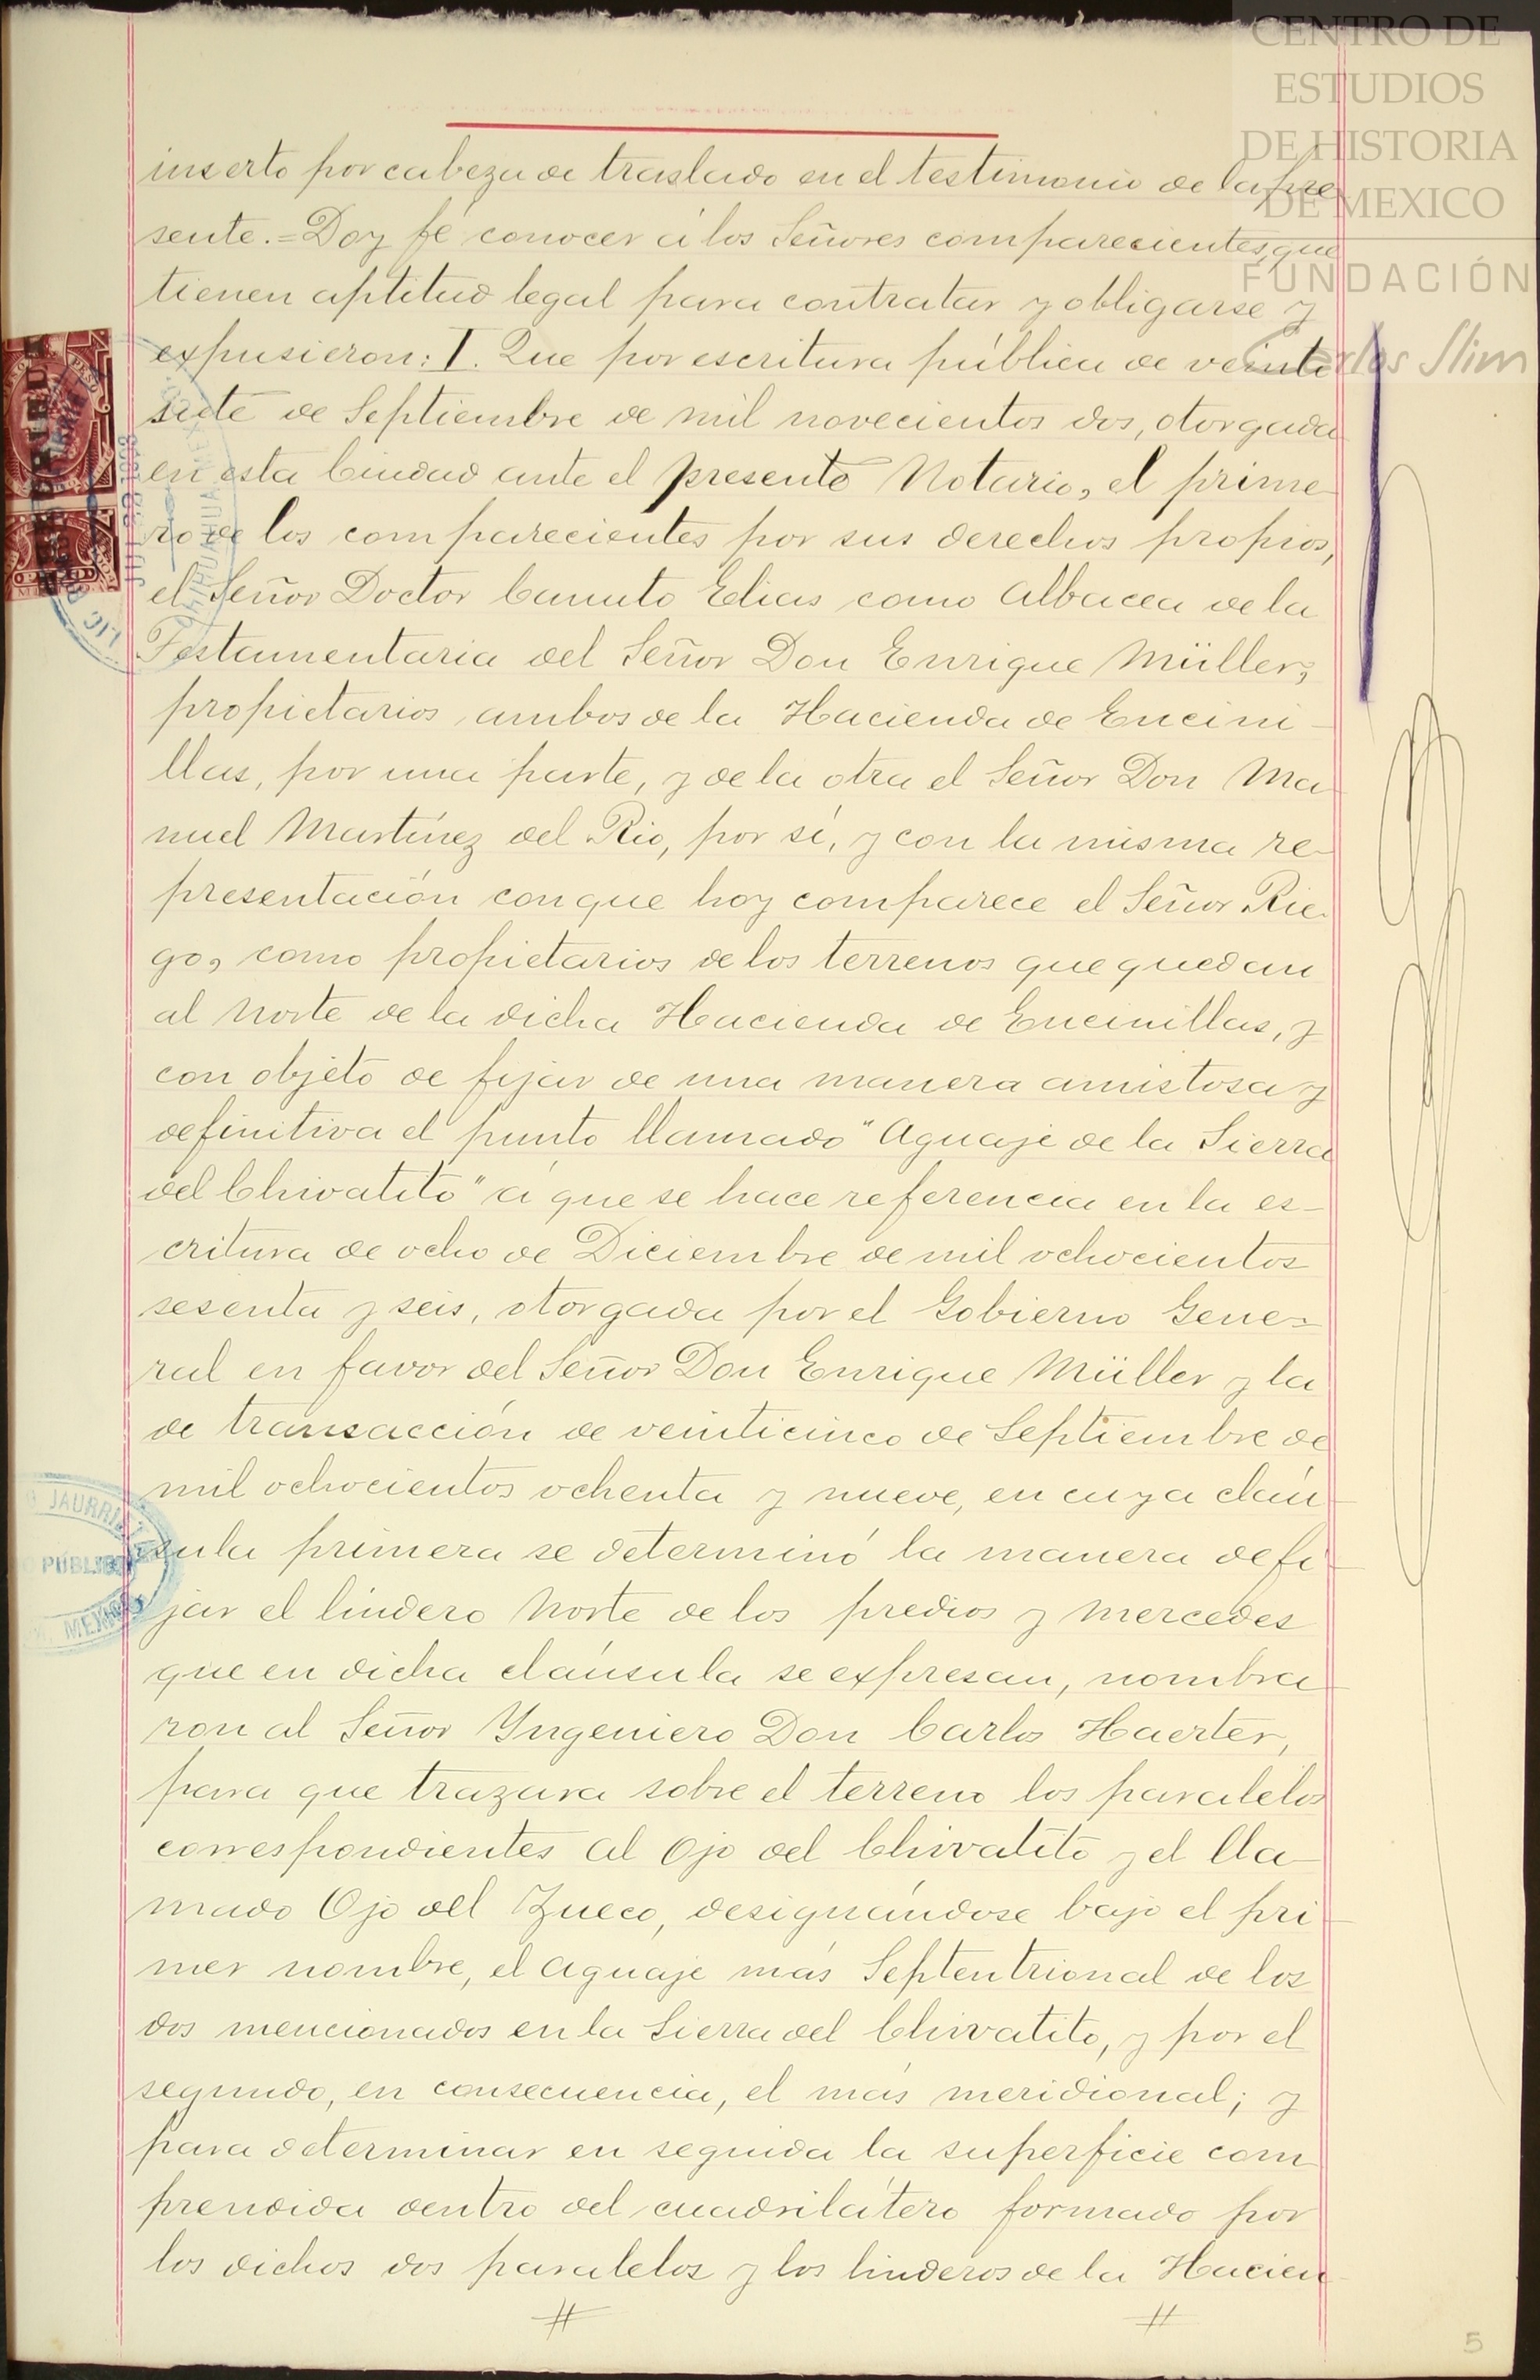 CENTRO DE
ESTUDIOS
DE HISTORIA
DE MEXICO
FUNDACIÓN
Carlos Slim
inserto por cabeza de traslado en el testimonio de la pre
sente.=Doy fé conocer á los Señores comparecientes, que
tienen aptitud legal para contratar y obligarse y
expusieron: I. Que por escritura pública de veinte
siete de Septiembre de mil novecientos dos, otorgada
en esta Ciudad ante el presente Notario, el prime
ro de los comparecientes por sus derechos propios,
el Señor Doctor Canuto Elias como Albacea de la
Testamentaria del Señor Don Enrique Müller,
propietarios ambos de la Hacienda de Encini-
llas, por una parte, y de la otra el Señor Don Ma
nuel Martínez del Rio, por sí, y con la misma re-
presentación con que hoy comparece el Señor Rie-
go, como propietarios de los terrenos que quedan
al Norte de la dicha Hacienda de Encinillas, y
con objeto de fijar de una manera amistosa y
definitiva el punto llamado "Aguaje de la Sierra
del Chivatito" á que se hace referencia en la es-
critura de ocho de Diciembre de mil ochocientos
sesenta y seis, otorgada por el Gobierno Gene-
ral en favor del Señor Don Enrique Müller y la
de transacción de veinticinco de Septiembre de
mil ochocientos ochenta y nueve, en cuya cláu-
sula primera se determinó la manera de fi-
jar el lindero Norte de los predios y mercedes
que en dicha claúsula se expresan, nombra-
ron al Señor Yngeniero Don Carlos Haerter,
para que trazara sobre el terreno los paralelos
correspondientes al Ojo del Chivatito y el lla-
mado Ojo del Zueco, designándose bajo el pri-
mer nombre, el aguaje más Septentrional de los
dos mencionados en la Sierra del Chivatito, y por el
segundo, en consecuencia, el más meridional; y
para determinar en seguida la superficie com
prendida dentro del cuadrilátero formado por
los dichos dos paralelos y los linderos de la Hacien-
JAURRI
PÚBLICO
MEXICO
5